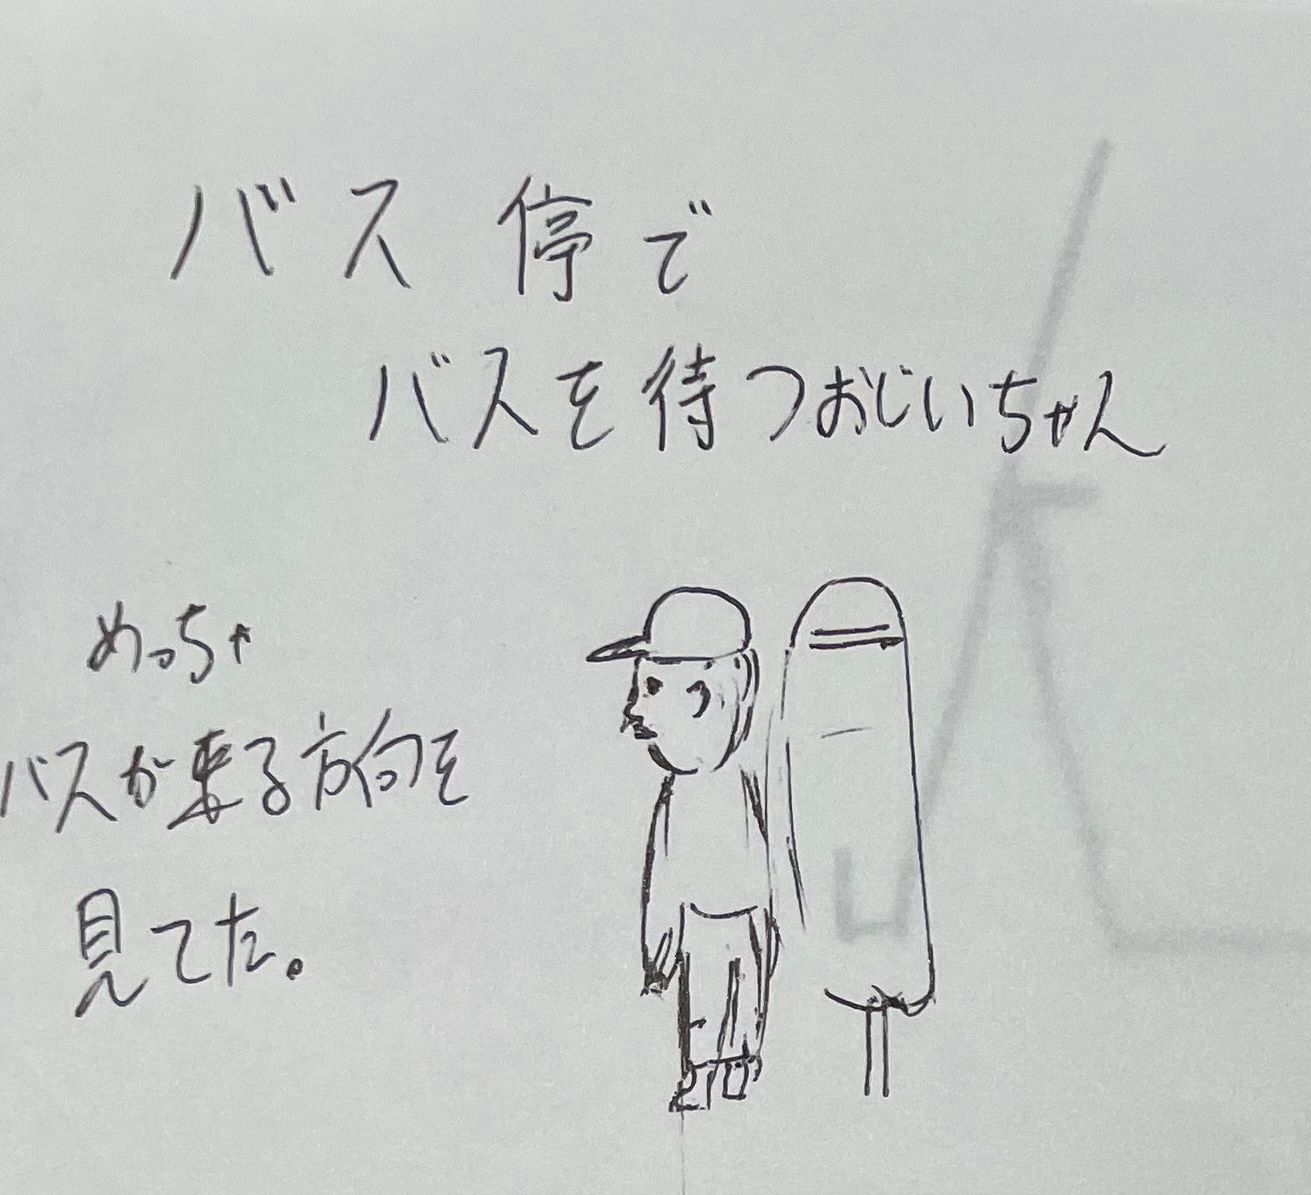 バス停で
バスを待つおじいちゃん
めっちゃ
バスが来る方向を
見てた。